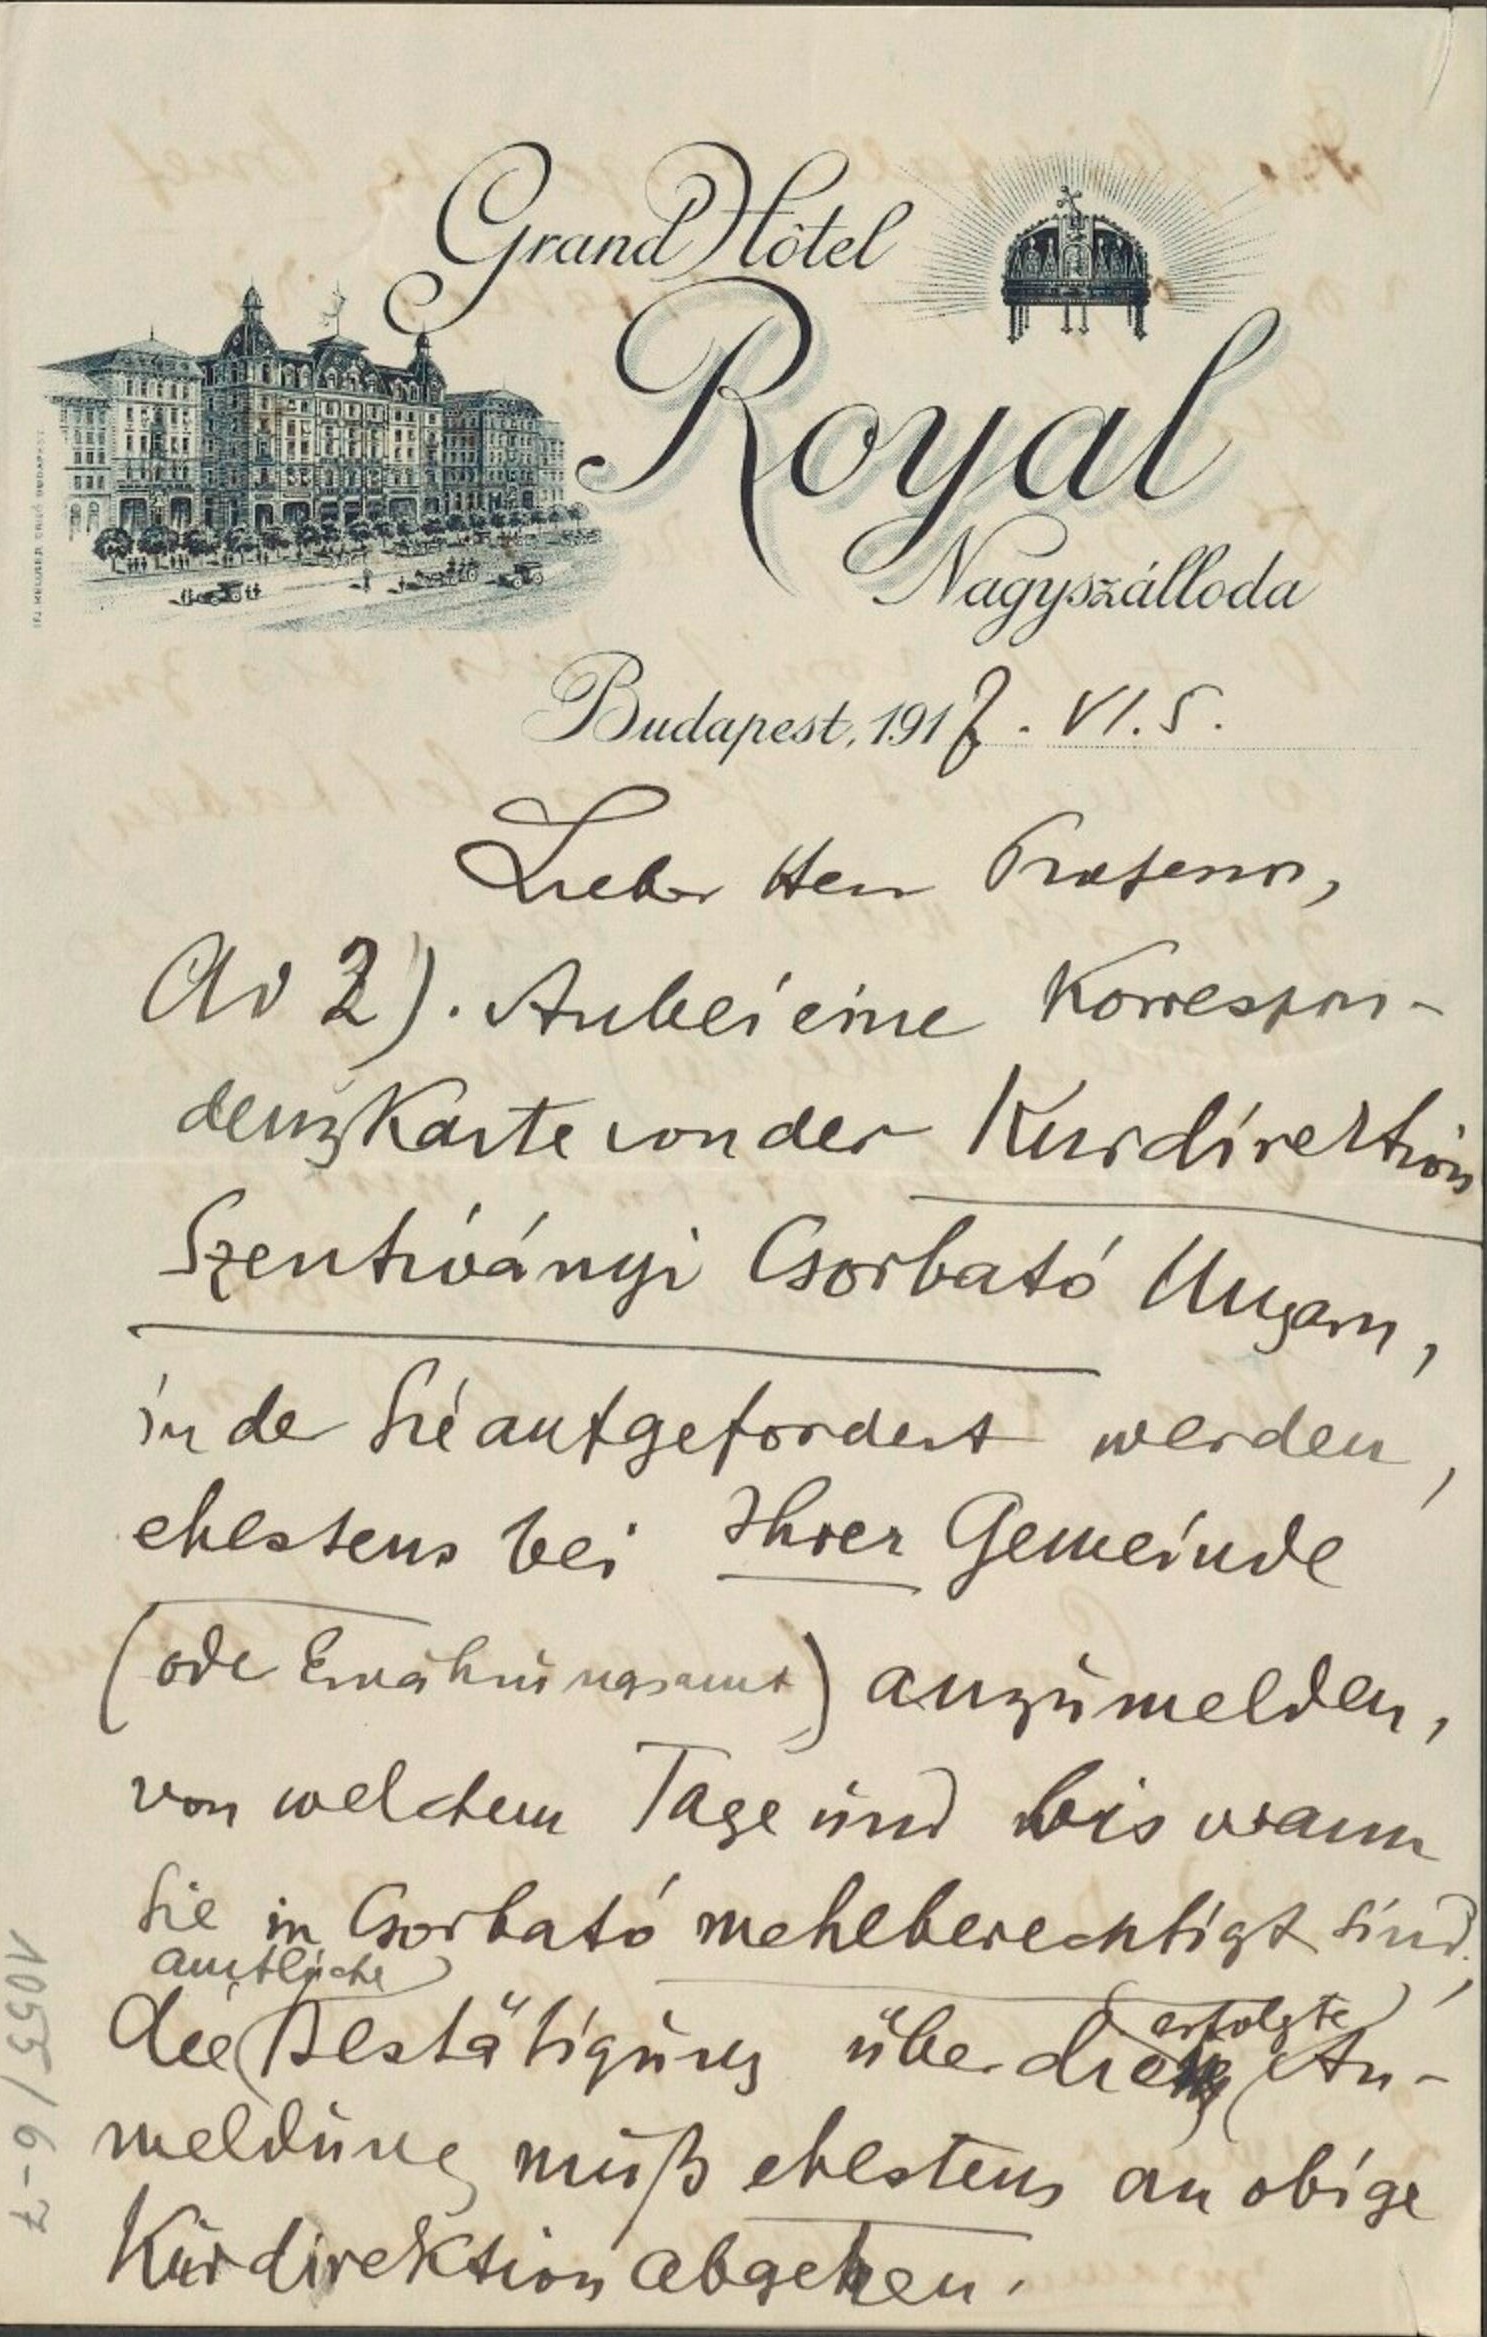 Grand Hôtel
Royal
Nagyszálloda
Budapest, 1917. VI. 5.
Lieber Herr Professor,
Ad 2). Anbei eine Korrespon-
denzKarte von der Kurdirektion
Szentiványi Csorbató Ungarn,
in der Sie aufgefordert werden,
ehestens bei Ihrer Gemeinde
(oder Ernährungsamt) anzumelden,
von welchem Tage und bis wann
Sie in Csorbató mehlberechtigt sind,
amtliche
die Bestätigung über die erfolgte An-
meldung muß ehestens an obige
Kurdirektion abgehen.
1055/6-7